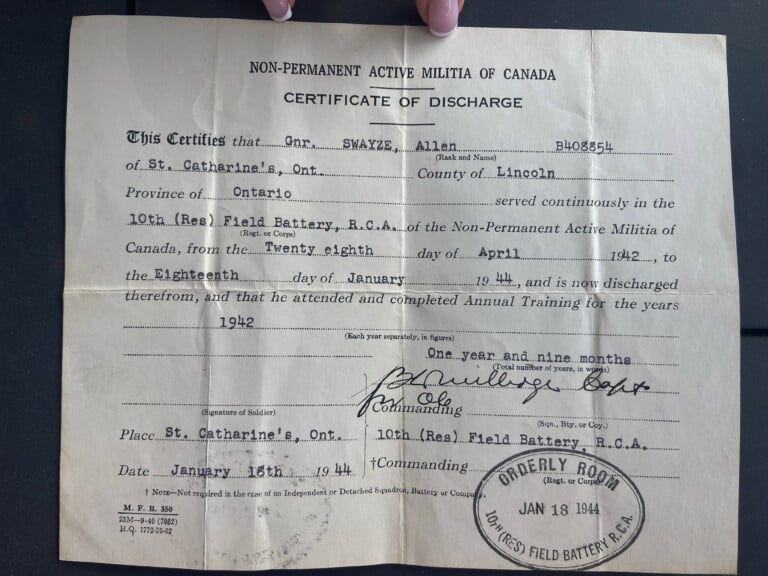 NON-PERMANENT ACTIVE MILITIA OF CANADA
CERTIFICATE OF DISCHARGE
This Certifies that Gnr. SWAYZE, Allen B408854
(Rank and Name)
of St. Catharine's, Ont. County of Lincoln
Province of Ontario served continuously in the
10th (Res) Field Battery, R.C.A. of the Non-Permanent Active Militia of
(Regt. or Corps)
Canada, from the Twenty eighth day of April 1942, to
the Eighteenth day of January 1944, and is now discharged
therefrom, and that he attended and completed Annual Training for the years
1942
(Each year separately, in figures)
One year and nine months
(Total number of years, in words)
Capt
(Signature of Soldier) Commanding
(Sqn., Bty. or Coy.)
Place St. Catharine's, Ont. 10th (Res) Field Battery, R.C.A.
Date January 18th 1944 †Commanding
(Regt. or Corps)
† NOTE—Not required in the case of an Independent or Detached Squadron, Battery or Company.
M. F. B. 350
25M—9-40 (7052)
H.Q. 1772-39-62
ORDERLY ROOM
JAN 18 1944
10TH (RES) FIELD BATTERY R.C.A.